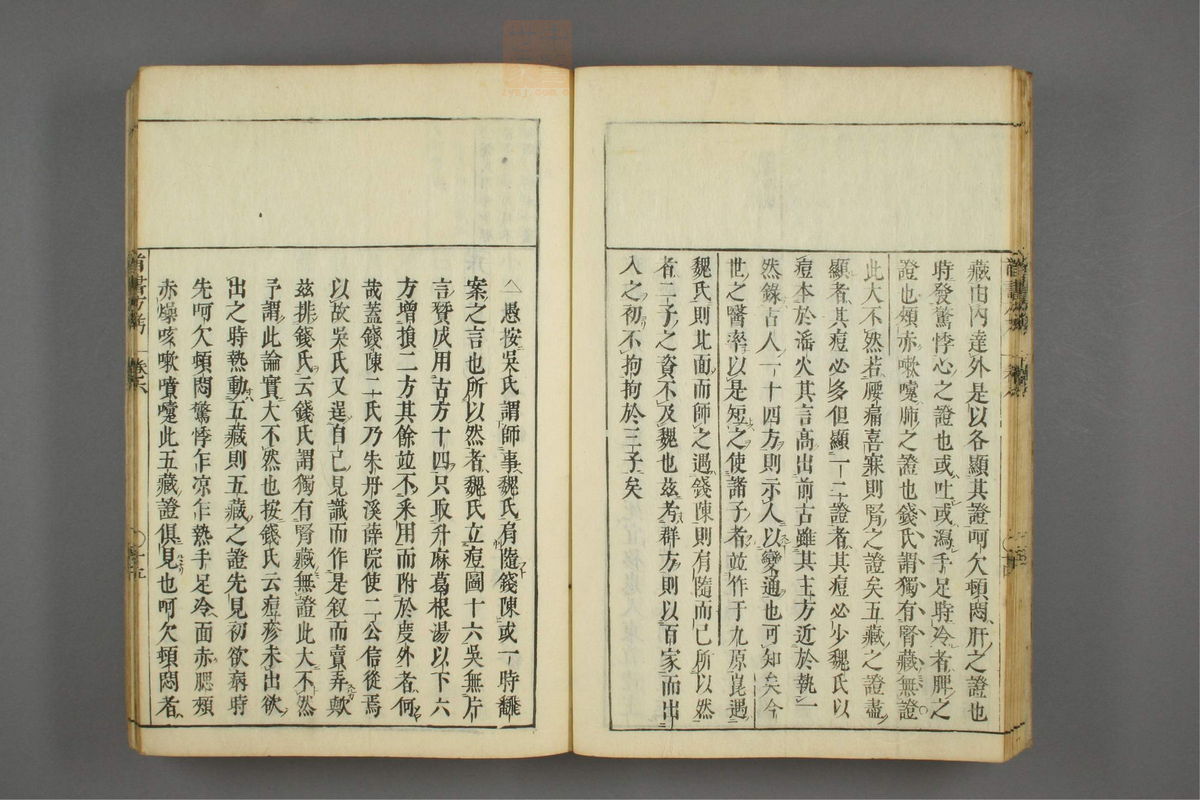 藏由內達外是以各顯其證呵欠頓悶肝之證也
時發驚悸心之證也或吐或瀉手足時冷者脾之
證也頰赤嗽嚏肺之證也錢氏謂獨有腎藏無證
此大不然若腰痛喜寐則腎之證矣五藏之證盡
顯者其痘必多但顯一二證者其痘必少魏氏以
痘本於滛火其言高出前古雖其主方近於執一
然錄古人一十四方則示人以變通也可知矣今
世之醫率以是短之使諸子者並作于九原崑遇
魏氏則北面而師之遇錢陳則有隨而已所以然
者二子之資不及魏也玆考群方則以百家而出
入之初不拘拘於三子矣
△愚按吳氏謂師事魏氏有隨錢陳或一時飜
案之言也所以然者魏氏立痘圖十六吳無片
言贊成用古方十四只取升麻葛根湯以下六
方增損二方其餘竝不采用而附於度外者何
哉蓋錢陳二氏乃朱丹溪薛院使二公信從焉
以故吳氏又逞自己見識而作是叙而賣弄歟
玆排錢氏云錢氏謂獨有腎藏無證此大不然
予謂此論實大不然也按錢氏云痘疹未出欲
出之時熱動五藏則五藏之證先見初欲病時
先呵欠頓悶驚悸乍凉乍熱手足冷面赤腮頰
赤燥咳嗽噴嚏此五藏證俱見也呵欠頓悶者